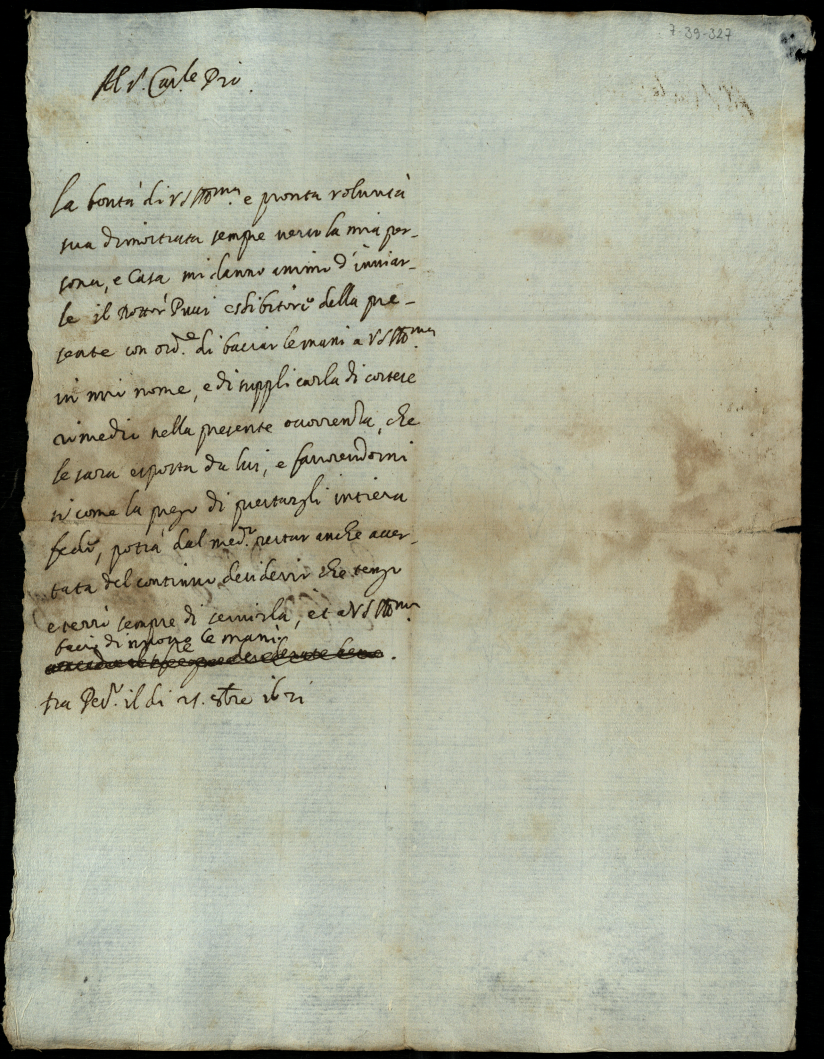 7-39-327
Al s.r Car.le Pio.
La bontà di V S Ill.ma e pronta voluntà
sua dimostrata sempre verso la mia per-
sona, e Casa mi danno animo d'inviar-
le il Dottor Pucci esibitore della pre-
sente con ord.e di baciar le mani a V S Ill.ma
in mio nome, e di supplicarla di cortese
rimedio nella presente occorrenza, che
le sara esposta da lui, e favorendomi
si come la prego di prestargli intiera
fede, potrà dal med.o restar anche accer-
tata del continuo desiderio che tengo
e terrò sempre di servirla, et a V S Ill.ma
bacio di nuovo le mani
.
tra Ped.e il di 21. 8bre 1621